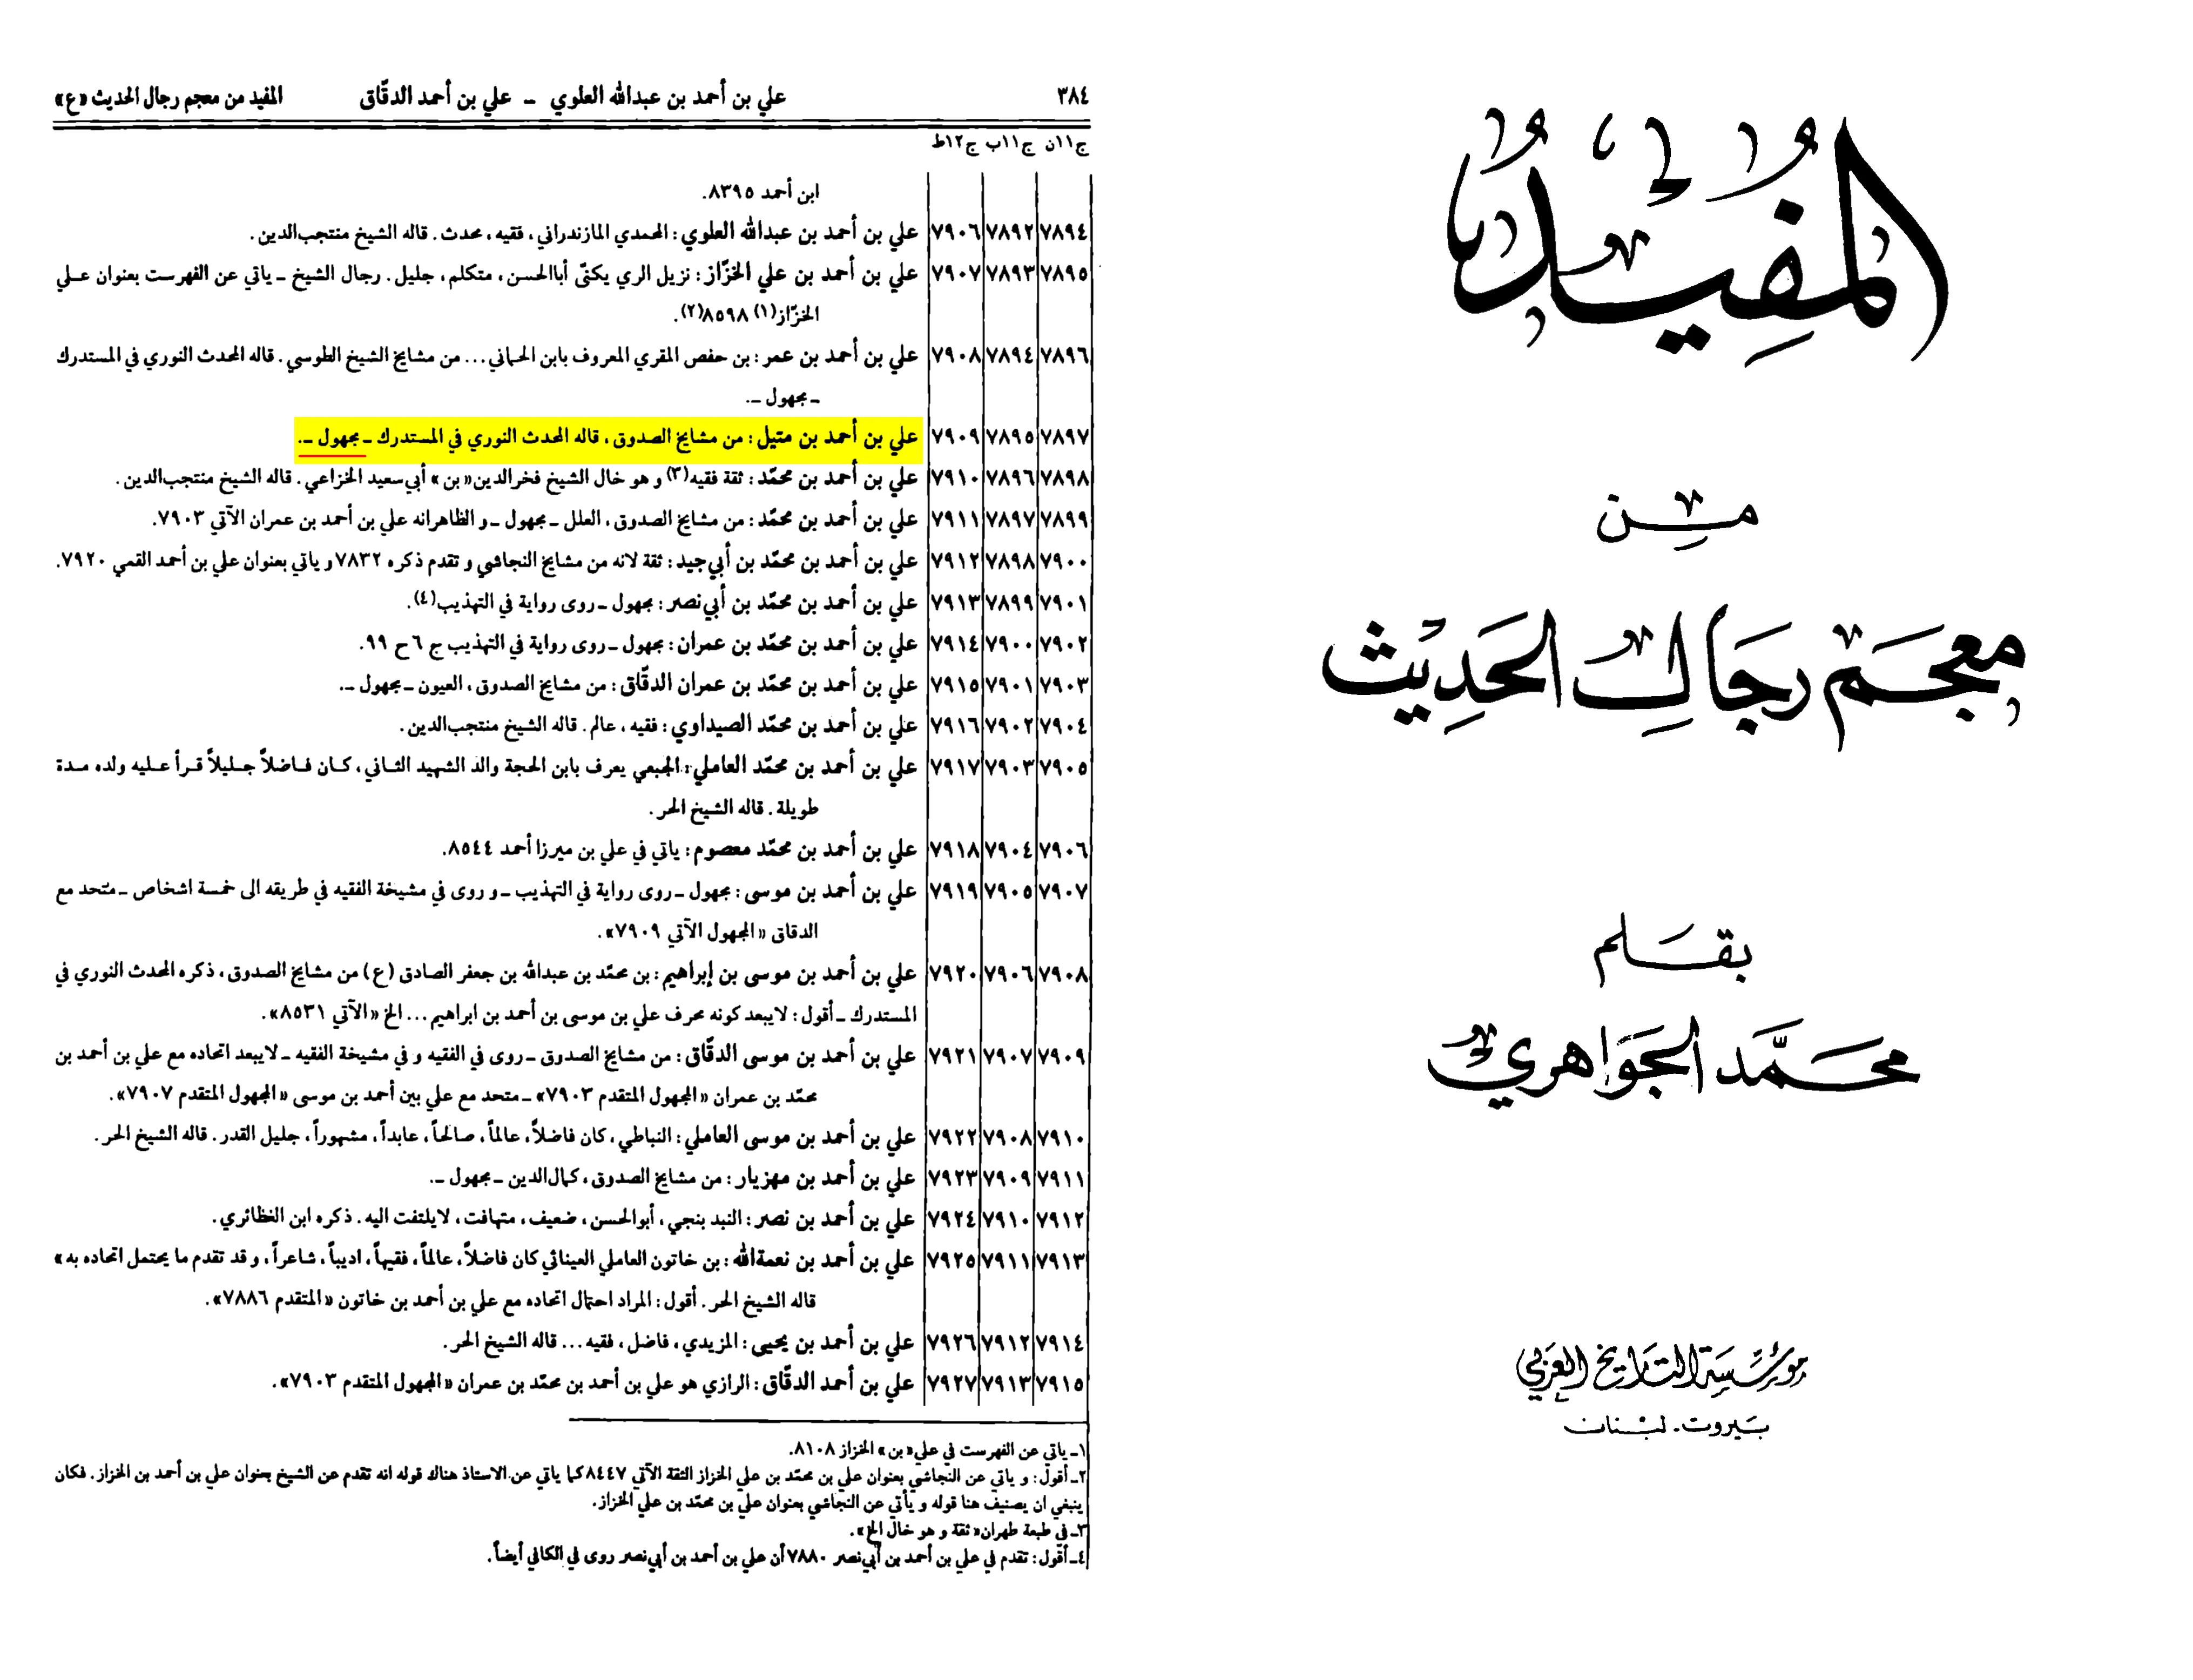 المفيد
من
معجم رجال الحديث
بقلم
محمد الجواهري
مؤسسة التاريخ العربي
بيروت - لبنان
٣٨٤ علي بن أحمد بن عبدالله العلوي ـ علي بن أحمد الدقّاق المفيد من معجم رجال الحديث «ع»
ج١١ن ج١١ب ج١٢ط
ابن أحمد ٨٣٩٥.
٧٨٩٤ ٧٨٩٢ ٧٩٠٦ علي بن أحمد بن عبدالله العلوي: المحمدي المازندراني، فقيه، محدث. قاله الشيخ منتجب‌الدين.
٧٨٩٥ ٧٨٩٣ ٧٩٠٧ علي بن أحمد بن علي الخزّاز: نزيل الري يكنّى أباالحسن، متكلم، جليل. رجال الشيخ ـ ياتي عن الفهرست بعنوان عـلي
الخزّاز(١) ٨٥٩٨(٢).
٧٨٩٦ ٧٨٩٤ ٧٩٠٨ علي بن أحمد بن عمر: بن حفص المقري المعروف بابن الحماني... من مشايخ الشيخ الطوسي. قاله المحدث النوري في المستدرك
ـ مجهول ـ.
٧٨٩٧ ٧٨٩٥ ٧٩٠٩ علي بن أحمد بن متيل: من مشايخ الصدوق، قاله المحدث النوري في المستدرك ـ مجهول ـ.
٧٨٩٨ ٧٨٩٦ ٧٩١٠ علي بن أحمد بن محمّد: ثقة فقيه(٣) و هو خال الشيخ فخرالدين «بن» أبي‌سعيد الخزاعي. قاله الشيخ منتجب‌الدين.
٧٨٩٩ ٧٨٩٧ ٧٩١١ علي بن أحمد بن محمّد: من مشايخ الصدوق، العلل ـ مجهول ـ و الظاهرانه علي بن أحمد بن عمران الآتي ٧٩٠٣.
٧٩٠٠ ٧٨٩٨ ٧٩١٢ علي بن أحمد بن محمّد بن أبي‌جيد: ثقة لانه من مشايخ النجاشي و تقدم ذكره ٧٨٣٢ و ياتي بعنوان علي بن أحمد القمي ٧٩٢٠.
٧٩٠١ ٧٨٩٩ ٧٩١٣ علي بن أحمد بن محمّد بن أبي‌نصر: مجهول ـ روى رواية في التهذيب(٤).
٧٩٠٢ ٧٩٠٠ ٧٩١٤ علي بن أحمد بن محمّد بن عمران: مجهول ـ روى رواية في التهذيب ج ٦ ح ٩٩.
٧٩٠٣ ٧٩٠١ ٧٩١٥ علي بن أحمد بن محمّد بن عمران الدقّاق: من مشايخ الصدوق، العيون ـ مجهول ـ.
٧٩٠٤ ٧٩٠٢ ٧٩١٦ علي بن أحمد بن محمّد الصيداوي: فقيه، عالم. قاله الشيخ منتجب‌الدين.
٧٩٠٥ ٧٩٠٣ ٧٩١٧ علي بن أحمد بن محمّد العاملي: الجبعي يعرف بابن الحجة والد الشهيد الثـاني، كـان فـاضلاً جـليلاً قـرأ عـليه ولده مـدة
طويلة. قاله الشيخ الحر.
٧٩٠٦ ٧٩٠٤ ٧٩١٨ علي بن أحمد بن محمّد معصوم: ياتي في علي بن ميرزا أحمد ٨٥٤٤.
٧٩٠٧ ٧٩٠٥ ٧٩١٩ علي بن أحمد بن موسى: مجهول ـ روى رواية في التهذيب ـ و روى في مشيخة الفقيه في طريقه الى خمسة اشخاص ـ متحد مع
الدقاق «المجهول الآتي ٧٩٠٩».
٧٩٠٨ ٧٩٠٦ ٧٩٢٠ علي بن أحمد بن موسى بن إبراهيم: بن محمّد بن عبدالله بن جعفر الصادق (ع) من مشايخ الصدوق، ذكره المحدث النوري في
المستدرك ـ أقول: لايبعد كونه محرف علي بن موسى بن أحمد بن ابراهيم... الخ «الآتي ٨٥٣١».
٧٩٠٩ ٧٩٠٧ ٧٩٢١ علي بن أحمد بن موسى الدقّاق: من مشايخ الصدوق ـ روى في الفقيه و في مشيخة الفقيه ـ لايبعد اتحاده مع علي بن أحمد بن
محمّد بن عمران «المجهول المتقدم ٧٩٠٣» ـ متحد مع علي بين أحمد بن موسى «المجهول المتقدم ٧٩٠٧».
٧٩١٠ ٧٩٠٨ ٧٩٢٢ علي بن أحمد بن موسى العاملي: النباطي، كان فاضلاً، عالماً، صالحاً، عابداً، مشهوراً، جليل القدر. قاله الشيخ الحر.
٧٩١١ ٧٩٠٩ ٧٩٢٣ علي بن أحمد بن مهزيار: من مشايخ الصدوق، كمال‌الدين ـ مجهول ـ.
٧٩١٢ ٧٩١٠ ٧٩٢٤ علي بن أحمد بن نصر: النبد بنجي، أبوالحسن، ضعيف، متهافت، لايلتفت اليه. ذكره ابن الغظائري.
٧٩١٣ ٧٩١١ ٧٩٢٥ علي بن أحمد بن نعمةالله: بن خاتون العاملي العيناثي كان فاضلاً، عالماً، فقيهاً، اديباً، شاعراً، و قد تقدم ما يحتمل اتحاده به»
قاله الشيخ الحر. أقول: المراد احتمال اتحاده مع علي بن أحمد بن خاتون «المتقدم ٧٨٨٦».
٧٩١٤ ٧٩١٢ ٧٩٢٦ علي بن أحمد بن يحيى: المزيدي، فاضل، فقيه... قاله الشيخ الحر.
٧٩١٥ ٧٩١٣ ٧٩٢٧ علي بن أحمد الدقّاق: الرازي هو علي بن أحمد بن محمّد بن عمران «المجهول المتقدم ٧٩٠٣».
١ـ ياتي عن الفهرست في علي «بن» الخزاز ٨١٠٨.
٢ـ أقول: و ياتي عن النجاشي بعنوان علي بن محمّد بن علي الخزاز الثقة الآتي ٨٤٤٧ كما ياتي عن الاستاذ هناك قوله انه تقدم عن الشيخ بعنوان علي بن أحمد بن الخزاز. فكان
ينبغي ان يصنيف هنا قوله و يأتي عن النجاشي بعنوان علي بن محمّد بن علي الخزاز.
٣ـ في طبعة طهران «ثقة و هو خال الخ».
٤ـ أقول: تقدم في علي بن أحمد بن أبي‌نصر ٧٨٨٠ أن علي بن أحمد بن أبي‌نصر روى في الكافي أيضاً.